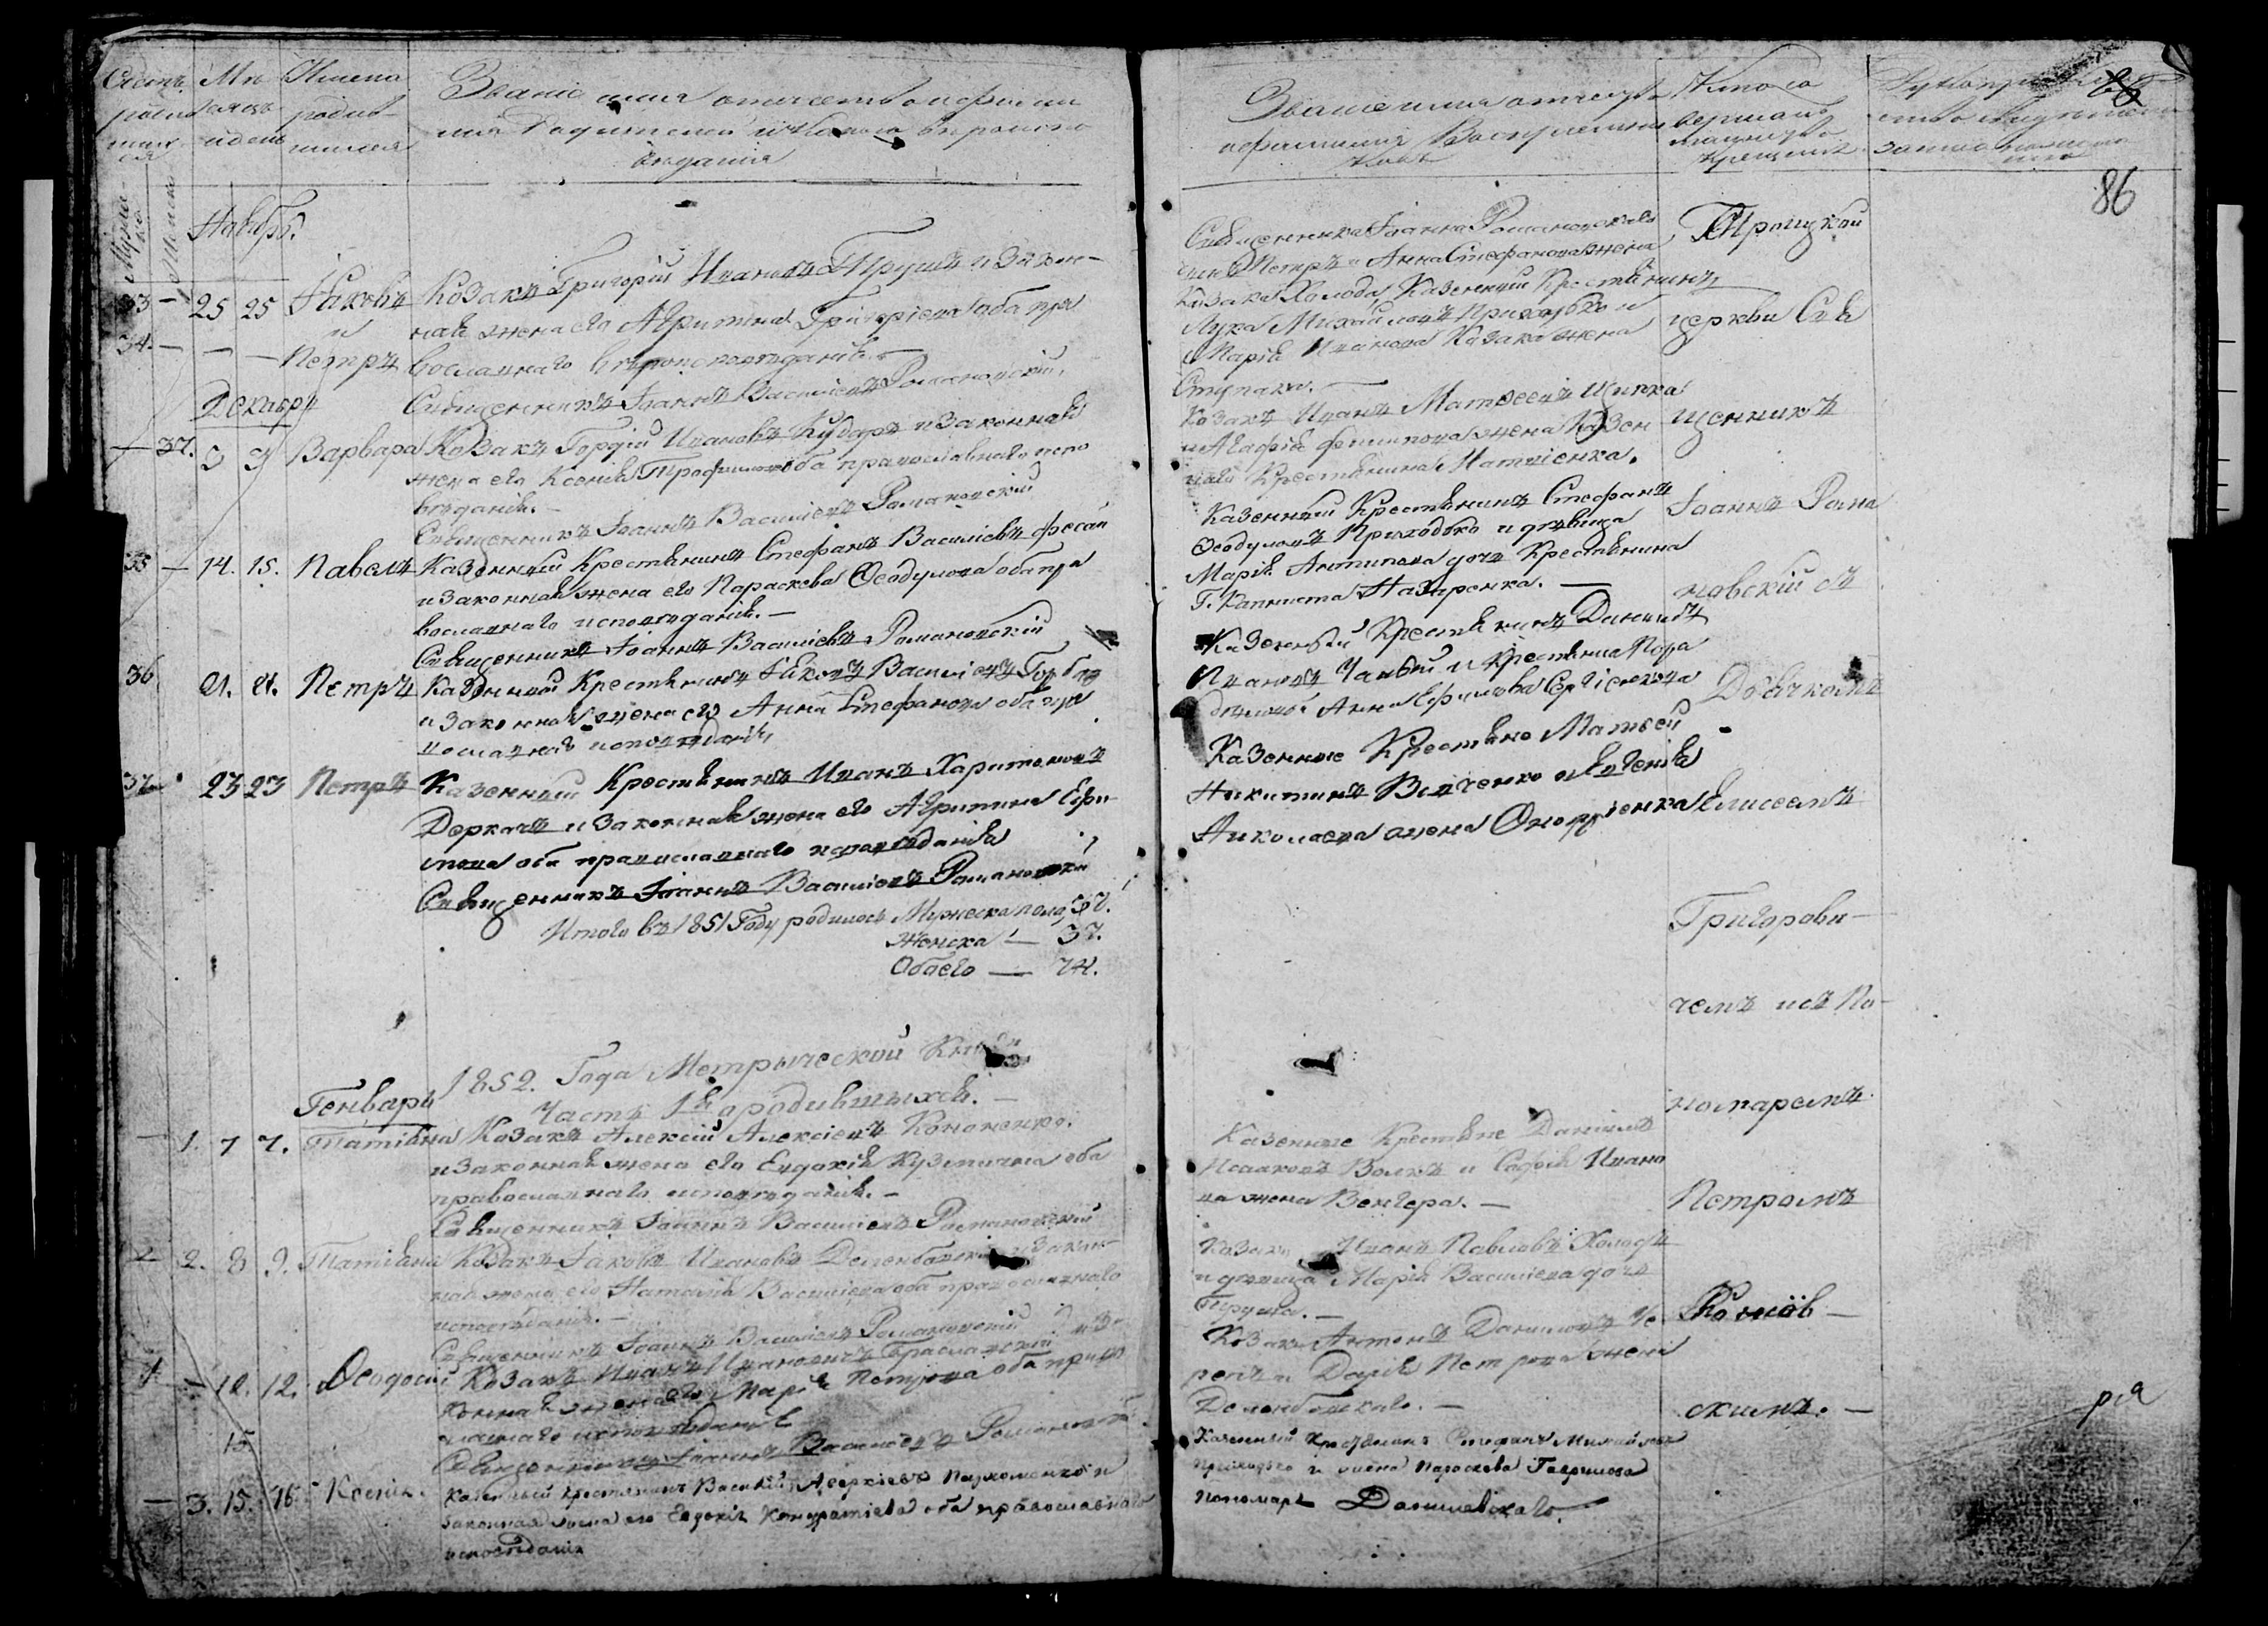 Счетъ
родив
шихся
Мужеска
Женска
Мѣ
сяцъ
и день
Имена
родив-
шихся
Званіе имя отечество и фами
лія Родителей и какого вѣроиспо
вѣданія
Ноябрь.
33 — 25 25 Іяковъ Козакъ Григорій Ивановъ Пругло и закон-
и ная жена его Агрипина Григоріева оба пра
34. — — — Петръ вославнаго вѣроисповѣданія. —
Священникъ Іоаннъ Василіевъ Романовскій,
Декабрь
— 37. 3 3 Варвара Козакъ Гордій Ивановъ Кударь и законная
жена его Ксенія Трофимова оба православнаго испо
вѣданія. —
Священникъ Іоаннъ Василіевъ Романовскій
35 — 14. 15. Павелъ Казенный Крестьянинъ Стефанъ Василіевъ Фесай
и законная жена его Параскева Ѳеодулова оба пра
вославнаго исповѣданія. —
Священникъ Іоаннъ Василіевъ Романовскій
36 21. 21. Петръ Казенный Крестьянинъ Іяковъ Василіевъ
и законная жена его Анна Стефанова оба пра
вославнаго исповѣданія
37. 23 23 Петръ Казенный Крестьянинъ Иванъ Харитоновъ
Деркачъ и законная жена его Агрипина Ефи-
мова оба православнаго исповѣданія
Священникъ Іоаннъ Василіевъ Романовскій
Итого въ 1851 Году родилось Мужеска полу 37.
Женска — 37.
Обоего — 74.
1852. Года Метрической Книги
Часть 1я о родившихся. —
Генварь
— 1. 7 7. Татіана Козакъ Алексій Алексіевъ Кононенко.
и законная жена его Евдокія Кузмична оба
православнаго исповѣданія. —
Священникъ Іоаннъ Василіевъ Романовскій
2. 8 9. Татіана Козакъ Іаковъ Ивановъ и закон
ная жена его Наталія Василіева оба православнаго
исповѣданія. —
Священникъ Іоаннъ Василіевъ Романовскій
1 — 12. 12. Ѳеодосій Козакъ Иванъ Ивановичъ и за
конная жена его Марія Петрова оба право
славнаго исповѣданія
15 Священникъ Іоаннъ Василіевъ Романовскій.
— 3. 15. 16. Ксенія. Казенный крестьянинъ Василій Аверкіевъ Пархоменко и
законная жена его Евдокія Кондратіева оба православнаго
исповѣданія
Званіе имя отечество
и фамилия Воспріемни
ковъ
Кто со
вершалъ
таинство
крещенія.
86
Священника Іоанна Романовскаго
сынъ Петръ и Анна Стефанова жена
Козака Холода, Казенный Крестьянинъ
Лука Михайловъ Приходько и
Марія Иванова Козака жена
Ступака. —
Козакъ Иванъ Матѳеевъ Щипка
и Агафія Филипова жена Казен
наго Крестьянина Матвіенка.
Казенный Крестьянинъ Стефанъ
Ѳеодуловъ Приходько и дѣвица
Марія Антипова дочь Крестьянина
Г. Капниста Назаренка. —
Казенный Крестьянинъ Даніилъ
Ивановъ Чалый и Крестьянка
Анна Ефимова
Казенные Крестьяне Матвей
Никитинъ Величенко и Евгенія
Николаева жена Онопріенка
Казенные Крестьяне Даніилъ
Исааковъ Волкъ и Софія Ивано
ва жена Венгера. —
Козаки Иванъ Павловъ Холодъ
и дѣвица Марія Василіева дочь
Козакъ Антонъ Даниловъ
и Дарія Петрова жена
Казенный Крестьянинъ Стефанъ Михайловъ
Приходько и жена Параскева Гаврилова
Пономаря Данилевскаго.
Троицкой
церкви Свя
щенникъ
Іоаннъ Рома
новскій съ
Дьячкомъ
Елисеемъ
Григорови-
чемъ и съ По-
номаремъ
Петромъ
скимъ. —